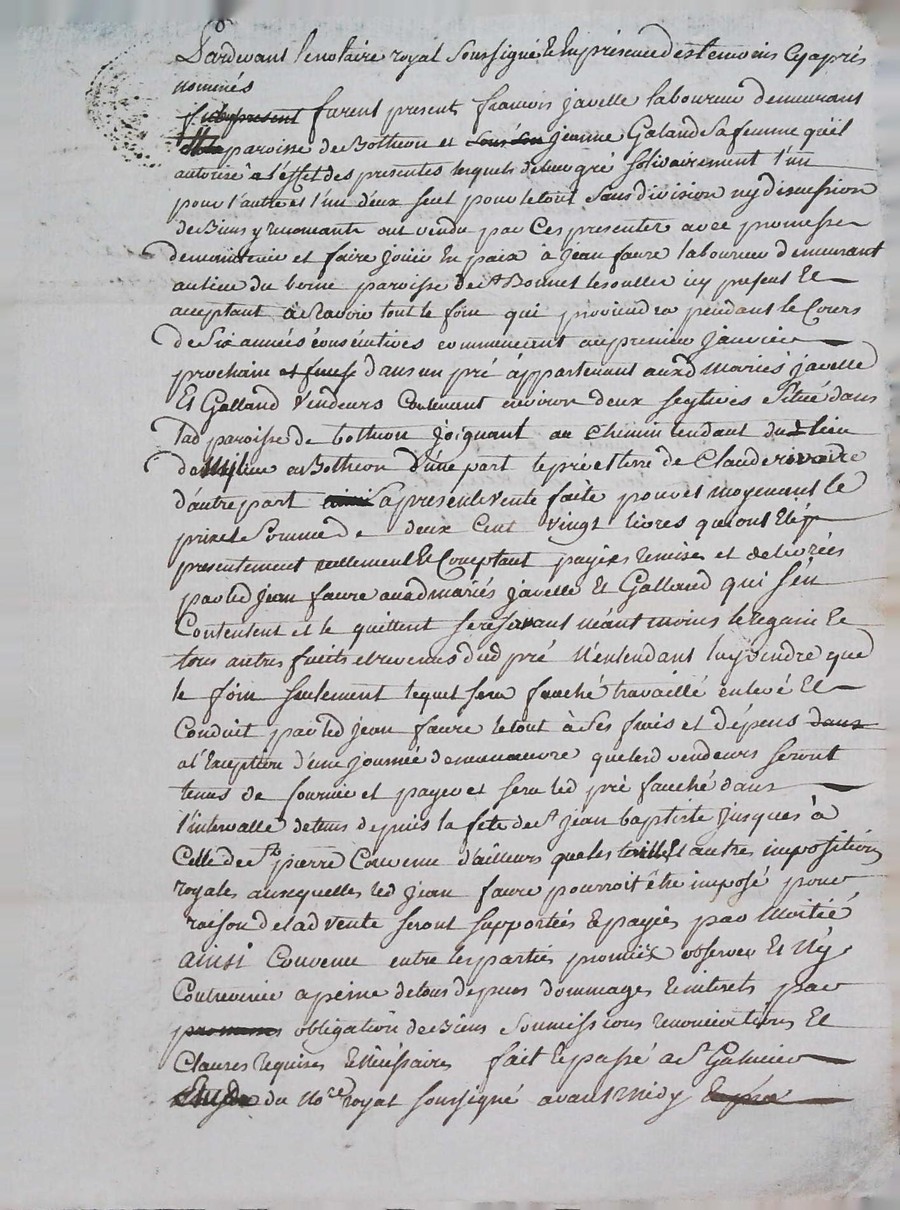 Pardevant le notaire royal soussigné & en présence des temoins cy après
nommés
furent present françois javelle laboureur demeurant
paroisse de Bothéon et jeanne Galand sa femme qu'il
autorise a l'effet des presentes lesquels de leur gré solidairement l'un
pour l'autre et l'un d'eux seul pour le tout sans division ny discussion
de Biens y renonçants ont vendu par Ces presentes avec promesse
de maintenir et faire jouir En paix à jean faure laboureur demeurant
au lieu du berne paroisse de St Bonnet les oulles icy present Et
acceptant a Scavoir tout le foin qui proviendra pendant le Cours
de Six années consécutives commencant au premier Janvier
prochain dans un pré appartenant auxd mariés javelle
Et Galland Vendeurs Contenant environ deux seytives Situé dans
lad paroisse de bothéon joignant au chemin tendant du lieu
de a Bothéon d'une part le pré et terre de Claude rivoire
d'autre part La presente Vente faite pour et moyenant le
prix et Somme de deux Cent vingt livres qui ont Eté
presentement reellement & Comptant payées remises et delivrées
par led jean faure auxd mariés javelle Et Galland qui s'en
Contentent et le quittent se réservant néantmoins le regain Et
tous autres fruits et revenus dud pré N'entendant luy vendre que
le foin seulement lequel sera fauché travaillé enlevé Et
Conduit par led jean faure le tout à Ses frais et dépens
a l'Exception d'une journée de manœuvre que lesd vendeurs seront
tenus de fournir et payer et sera led pré fauché dans
l'intervalle de tems depuis la fete de St jean baptiste jusques à
Celle de St pierre Convenu d'ailleurs que les tailles Et autres impositions
royales auxquelles led jean faure pourroit être imposé pour
raison de lad vente seront supportées & payées par Moitié
ainsi Convenu entre les parties promis observer Et N'y
Contrevenir a peine de tous depens dommages & interets par
obligation de Biens Soumissions renonciations Et
Clauses requises & nécessaires fait & passé a St Galmier
du Nore royal soussigné avant midy